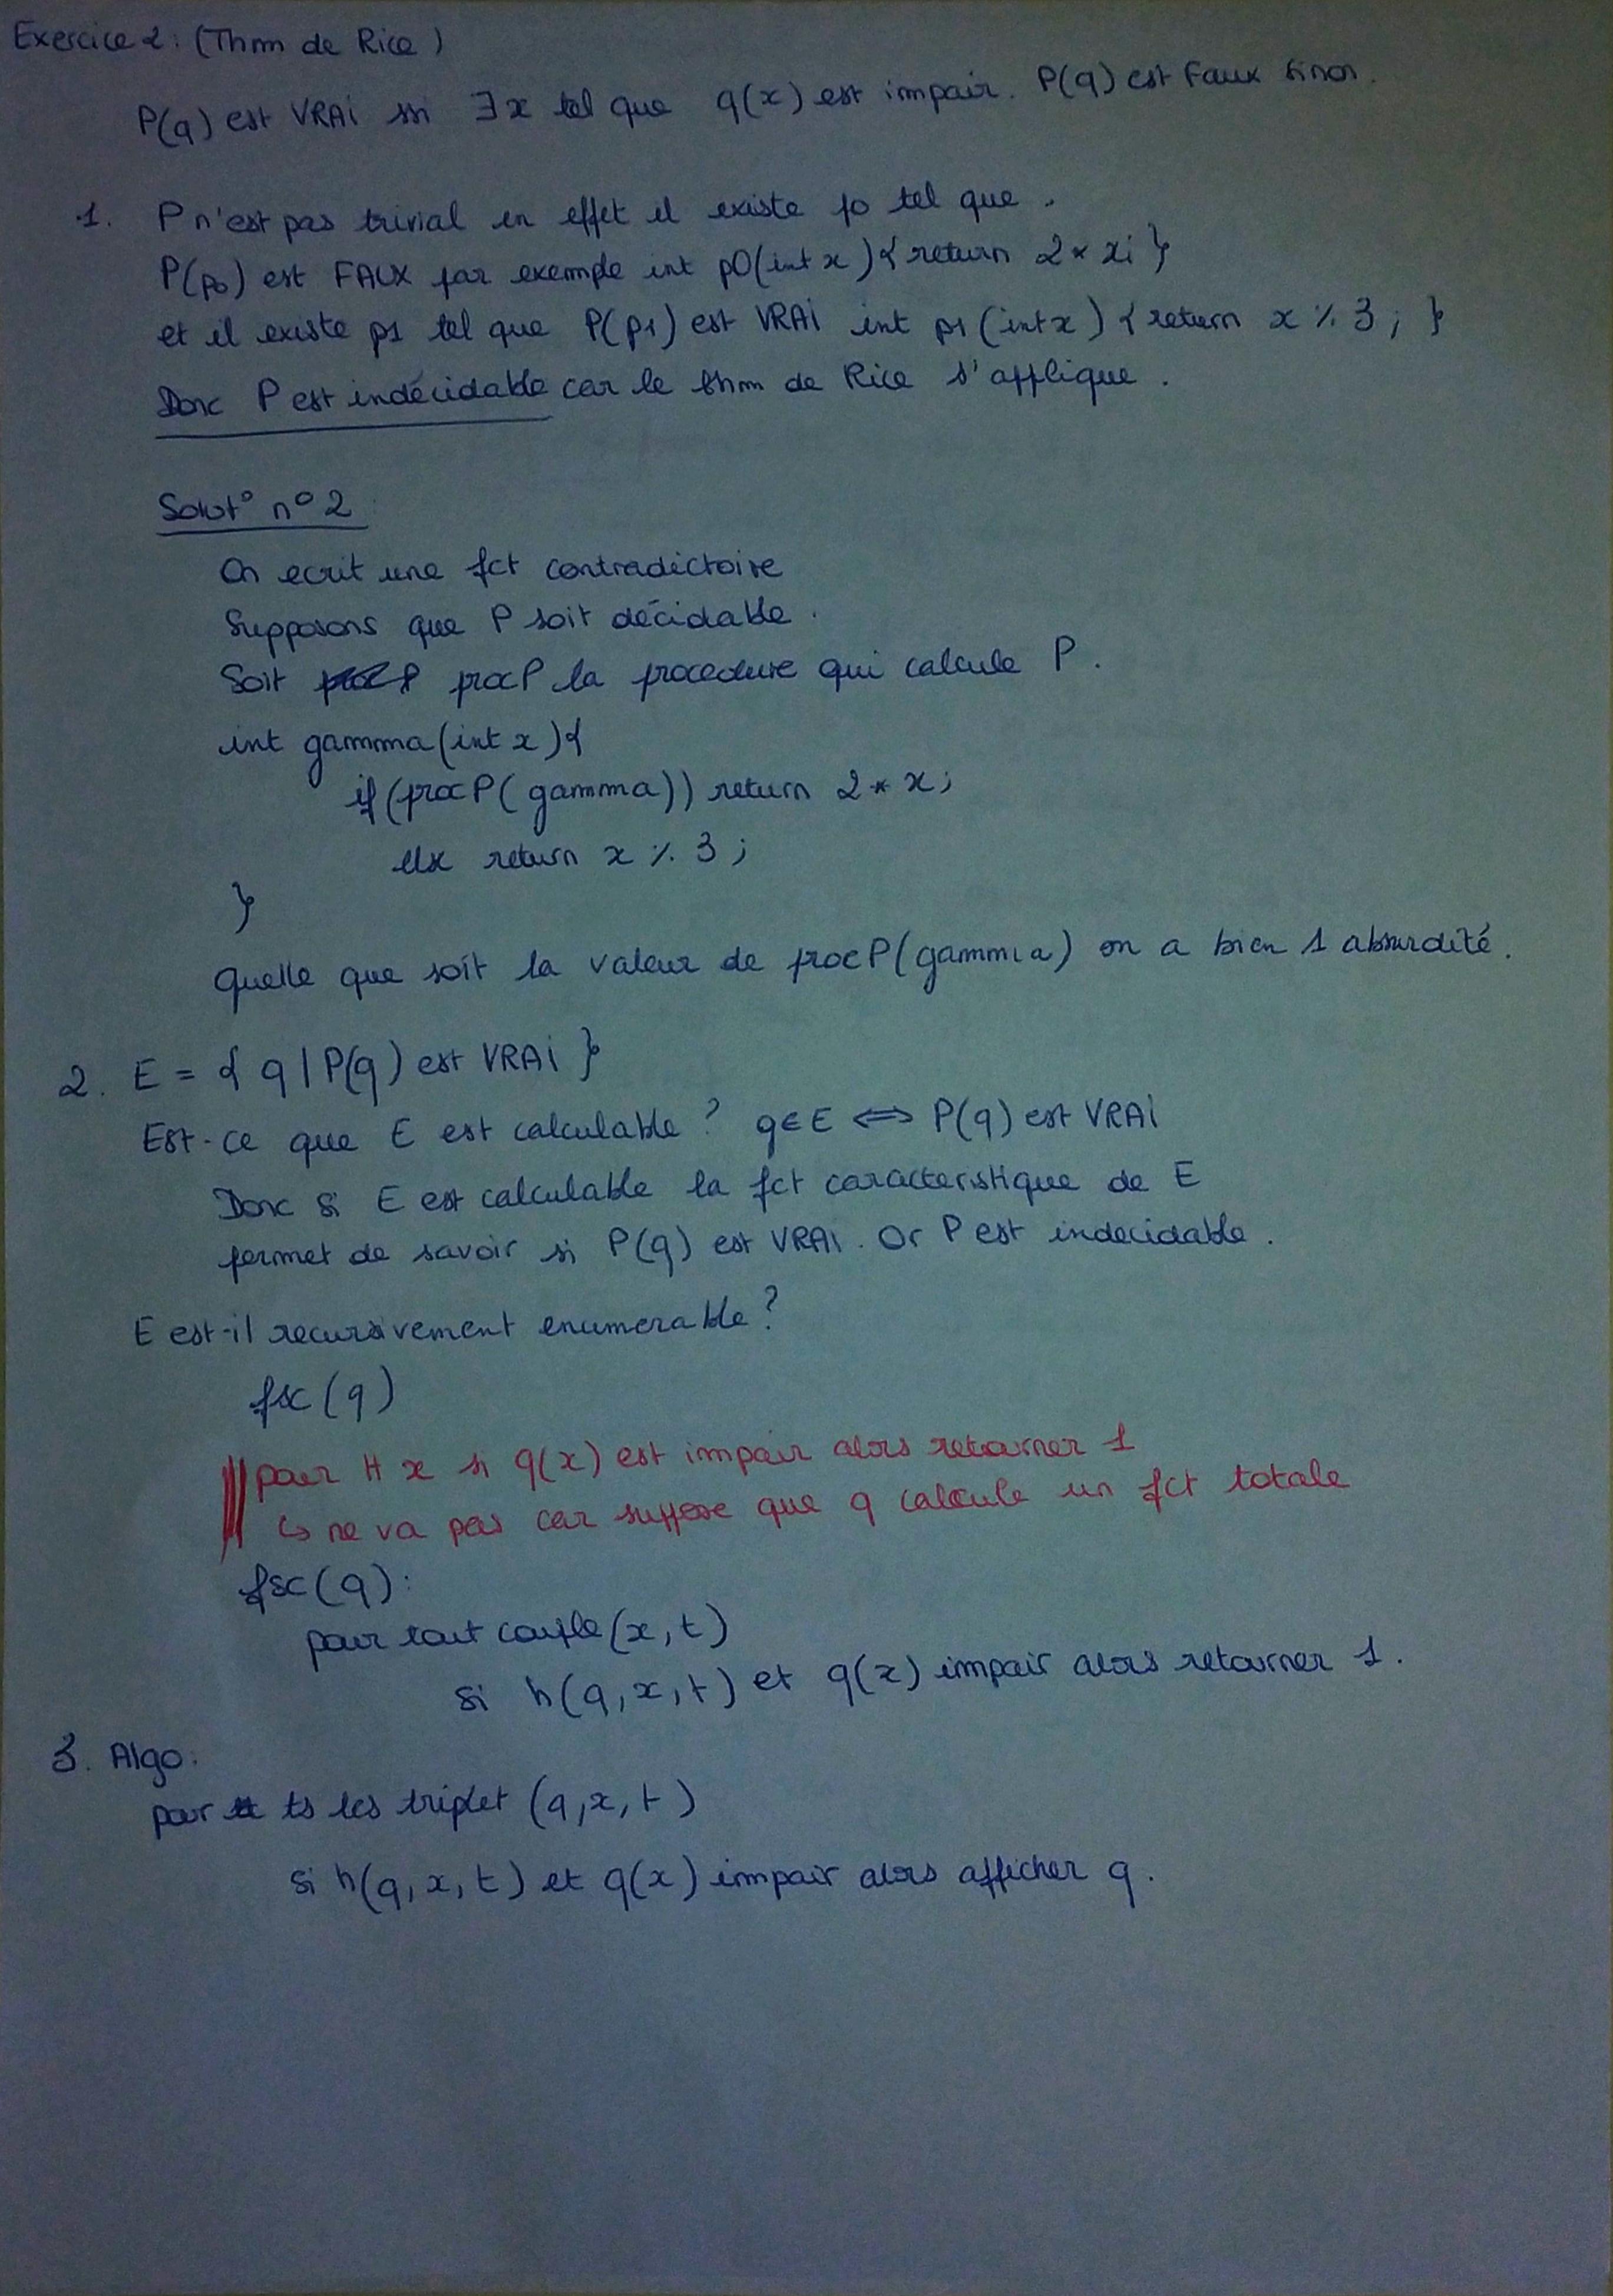 Exercice 2 : (Thm de Rice)
P(q) est VRAI ssi ∃ x tel que q(x) est impair. P(q) est Faux sinon.
1. P n'est pas trivial en effet il existe p0 tel que.
P(p0) est FAUX par exemple int p0(int x){return 2*x;}
et il existe p1 tel que P(p1) est VRAI int p1(int x){return x % 3; }
Donc P est indécidable car le thm de Rice s'applique.
Solut° n° 2
On ecrit une fct contradictoire
Supposons que P soit décidable.
Soit procP la procedure qui calcule P.
int gamma(int x){
if(procP(gamma)) return 2*x;
else return x % 3;
}
Quelle que soit la valeur de procP(gamma) on a bien 1 absurdité.
2. E = { q | P(q) est VRAI }
Est-ce que E est calculable ? q∈E ⟺ P(q) est VRAI
Donc si E est calculable la fct caracteristique de E
permet de savoir si P(q) est VRAI. Or P est indecidable.
E est-il recursivement enumerable ?
fsc(q)
pour tt x si q(x) est impair alors retourner 1
↳ ne va pas car suppose que q calcule un fct totale
fsc(q):
pour tout couple (x,t)
si h(q,x,t) et q(x) impair alors retourner 1.
3. Algo:
pour ts les triplet (q,x,t)
si h(q,x,t) et q(x) impair alors afficher q.